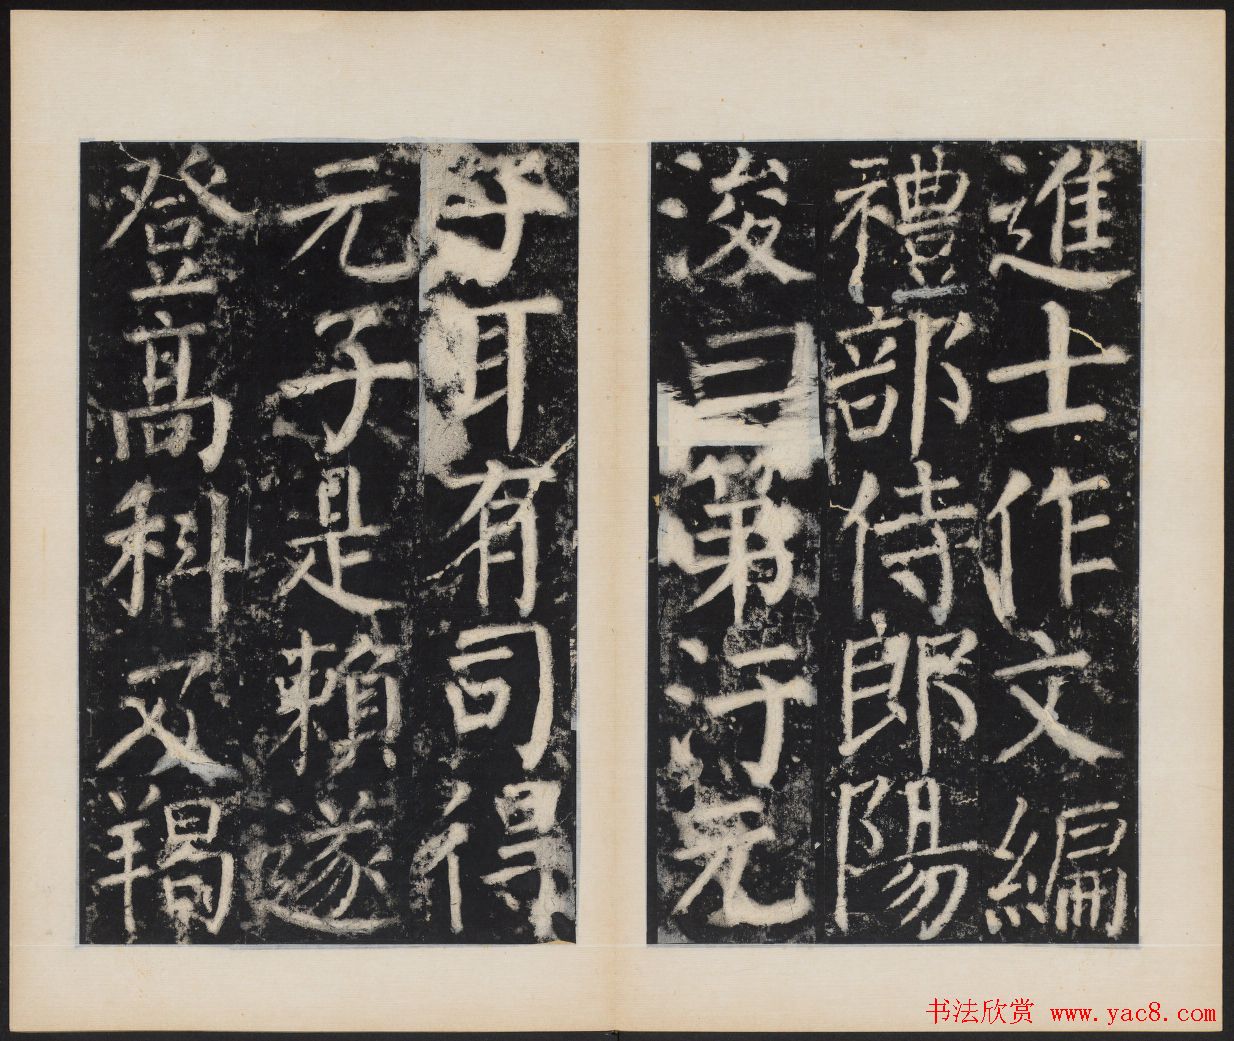 進士作文編
禮部侍郎陽
浚曰第汙元
子耳有司得
元子是賴遂
登高科又羯
书法欣赏 www.yac8.com